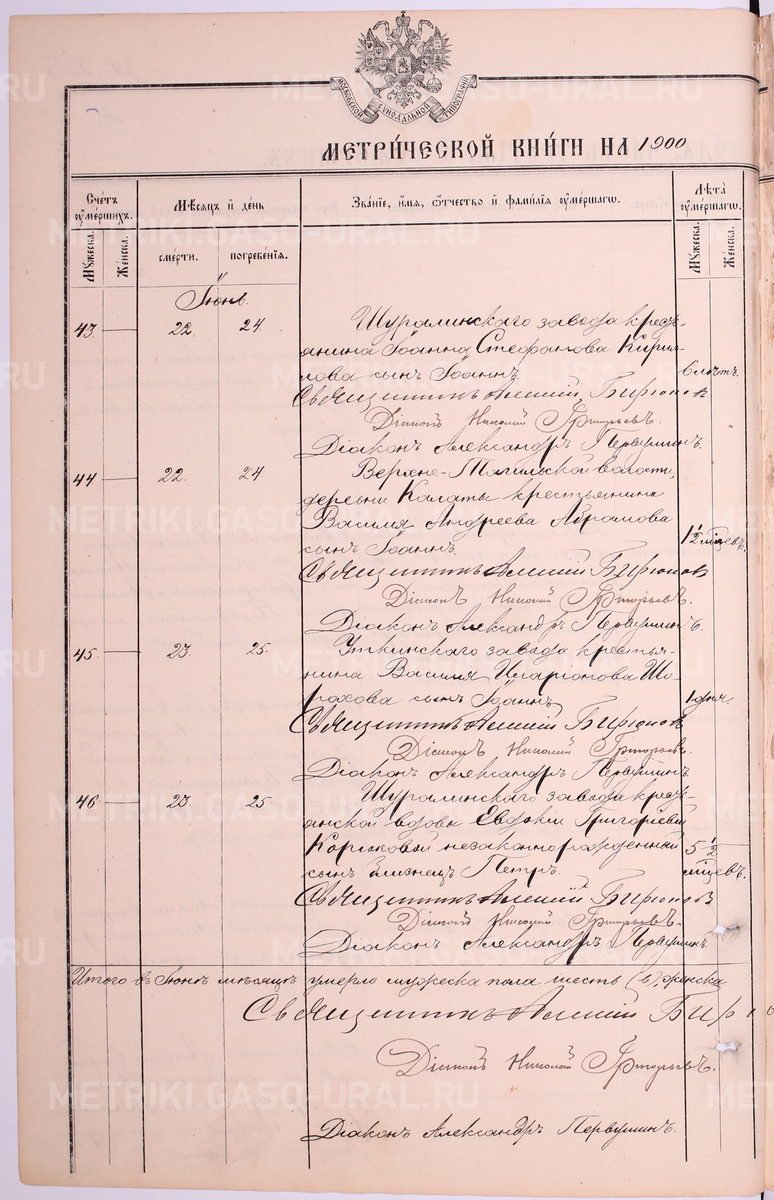 МОСКОВСКОЙ СѴНОДАЛЬНОЙ ТИПОГРАФІИ
МЕТРИ́ЧЕСКОЙ КНИ́ГИ НА 1900
Счетъ ᲂу҆мершихъ.
Мѣсяцъ и҆ де́нь
Зва́нїе, и҆́мя, ѻ҆́тчество и҆ фами́лїя ᲂу҆ме́ршагѡ.
Лѣ́та ᲂу҆ме́ршагѡ.
Мꙋ́жеска.
Же́нска.
сме́рти.
погребе́нїя.
Мꙋ́жеска.
Же́нска.
Іюнь
43 22. 24 Шуралинскаго завода крестьянина Іоанна Стефанова Кирил-
лова сынъ Іоаннъ 6 лѣтъ.
Священникъ Алексій Бирюков
Діаконъ Николай Григорьевъ.
Діаконъ Александръ Первушинъ.
44 22. 24 Верхне-Тагильской волости,
деревни Калаты крестьянина
Василія Андреева Абрамова
сынъ Іоаннъ. 1½ мѣсяцевъ.
Священникъ Алексій Бирюков
Діаконъ Николай Григорьевъ.
Діаконъ Александръ Первушинъ.
45. 23. 25. Уткинскаго завода крестья-
нина Василія Иларіонова Шо-
рохова сынъ Іоаннъ 1 дня.
Священникъ Алексій Бирюков
Діаконъ Николай Григорьевъ.
Діаконъ Александръ Первушинъ
46 23. 25 Шуралинскаго завода крест-
янской вдовы Евдокіи Григоріевой
незаконнорожденный 5½
сынъ близнецъ Петръ. мѣсяцевъ.
Священникъ Алексій Бирюков
Діаконъ Николай Григорьевъ.
Діаконъ Александръ Первушинъ.
Итого въ Іюнѣ мѣсяцѣ умерло мужеска пола шесть (6), женска
Священникъ Алексій Бирю
Діаконъ Николай Григорьевъ.
Діаконъ Александръ Первушинъ.
METRIKI.GASO-URAL.RU